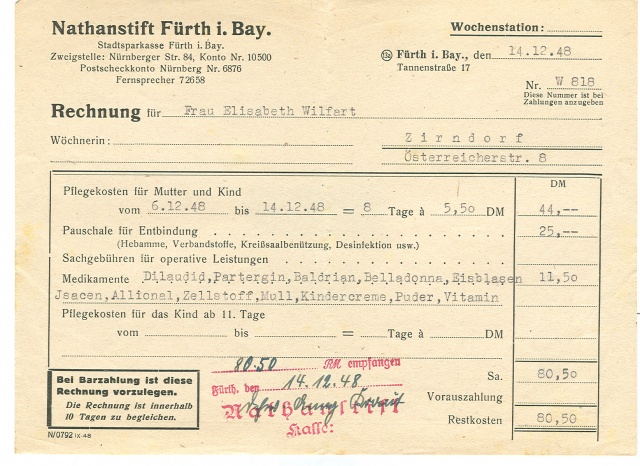 Nathanstift Fürth i. Bay.
Stadtsparkasse Fürth i. Bay.
Zweigstelle: Nürnberger Str. 84, Konto Nr. 10500
Postscheckkonto Nürnberg Nr. 6876
Fernsprecher 72658
Wochenstation:
13a Fürth i. Bay., den 14.12.48
Tannenstraße 17
Nr. W 818
Diese Nummer ist bei
Zahlungen anzugeben
Rechnung für Frau Elisabeth Wilfart
Wöchnerin:
Zirndorf
Österreicherstr. 8
DM
Pflegekosten für Mutter und Kind
vom 6.12.48 bis 14.12.48 = 8 Tage à 5,50 DM 44,--
Pauschale für Entbindung 25,--
(Hebamme, Verbandstoffe, Kreißsaalbenützung, Desinfektion usw.)
Sachgebühren für operative Leistungen
Medikamente Dilaudid,Partergin,Baldrian,Belladonna,Eisblasen 11,50
Jsacen,Allional,Zellstoff,Mull,Kindercreme,Puder,Vitamin
Pflegekosten für das Kind ab 11. Tage
vom bis = Tage à DM
80.50 RM empfangen
Fürth, den 14.12.48
Nathanstift
Kasse:
Bei Barzahlung ist diese
Rechnung vorzulegen.
Die Rechnung ist innerhalb
10 Tagen zu begleichen.
Sa. 80,50
Vorauszahlung
Restkosten 80,50
N/0792 IX 48